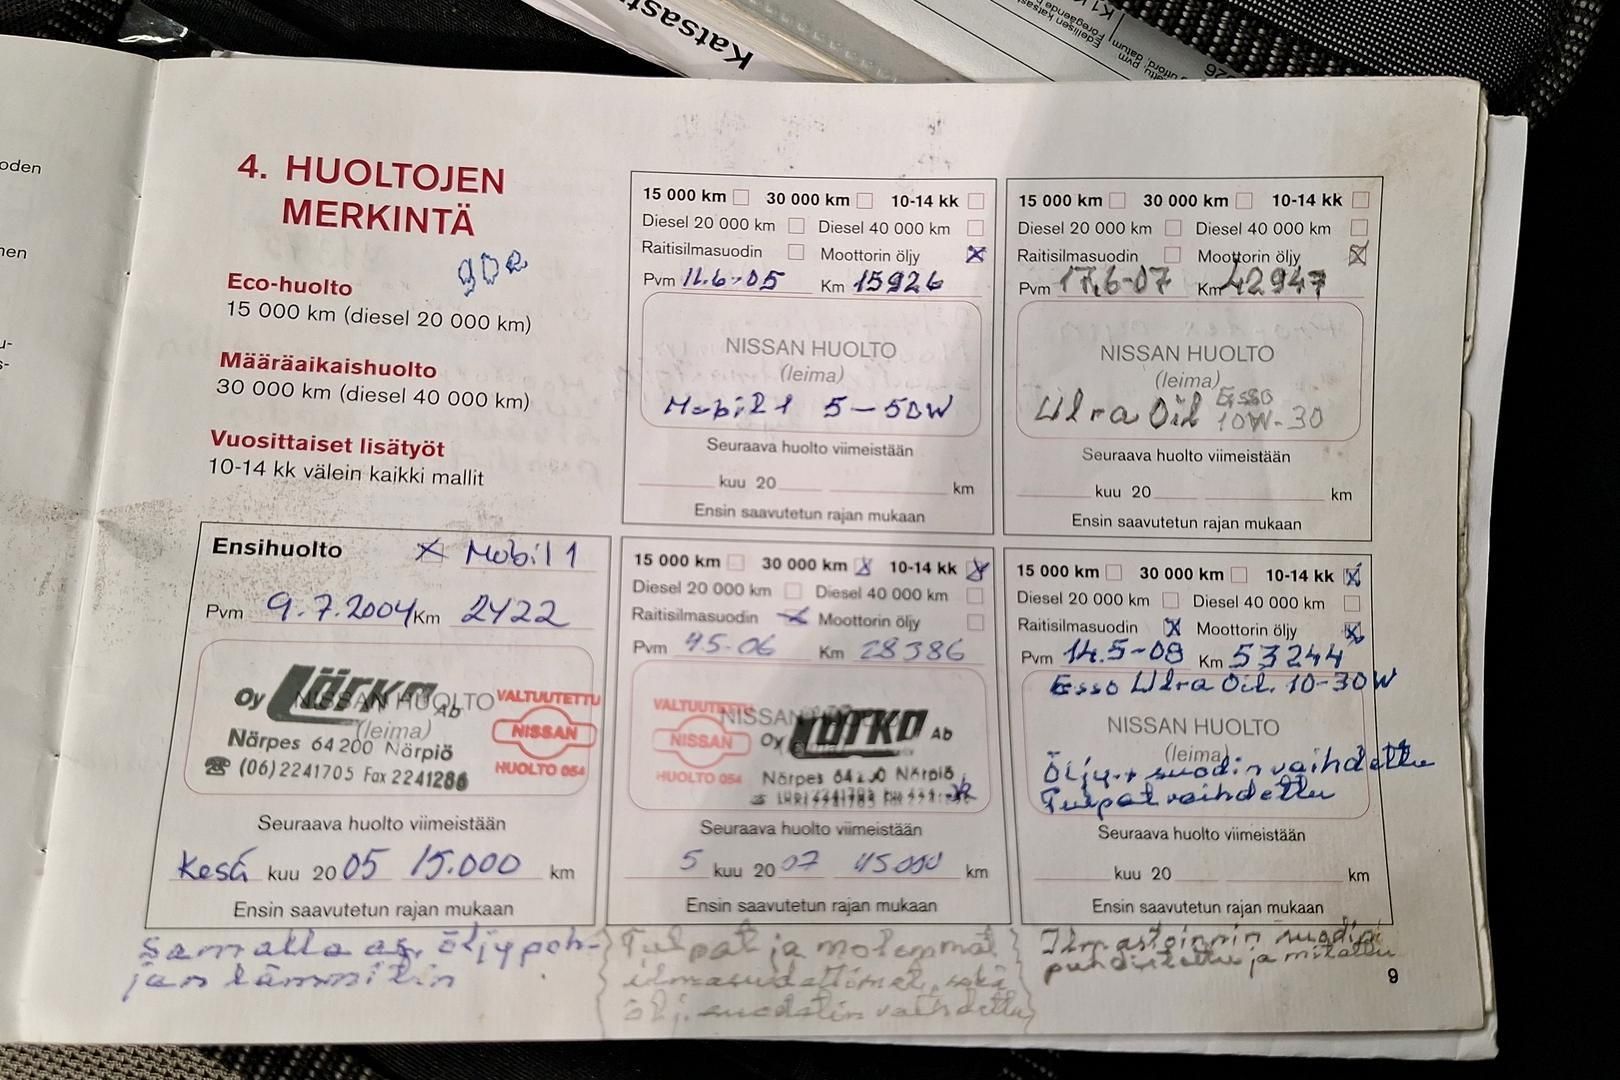 Katsast
Edellisen katsast
Föregående
K1
oden
nen
u-
s-
4. HUOLTOJEN
MERKINTÄ
Eco-huolto
15 000 km (diesel 20 000 km)
Määräaikaishuolto
30 000 km (diesel 40 000 km)
Vuosittaiset lisätyöt
10-14 kk välein kaikki mallit
15 000 km 30 000 km 10-14 kk
Diesel 20 000 km Diesel 40 000 km
Raitisilmasuodin Moottorin öljy
Pvm 11.6-05 Km 15926
NISSAN HUOLTO
(leima)
Mobil 1 5-50W
Seuraava huolto viimeistään
kuu 20 km
Ensin saavutetun rajan mukaan
15 000 km 30 000 km 10-14 kk
Diesel 20 000 km Diesel 40 000 km
Raitisilmasuodin Moottorin öljy
Pvm 17.6-07 Km 42947
NISSAN HUOLTO
(leima)
Esso
Ultra Oil 10W-30
Seuraava huolto viimeistään
kuu 20 km
Ensin saavutetun rajan mukaan
Ensihuolto Mobil 1
Pvm 9.7.2004 Km 2422
NISSAN HUOLTO
(leima)
Oy Ab
Närpes 64200 Närpiö
(06)2241705 Fax 2241286
VALTUUTETTU
NISSAN
HUOLTO 054
Seuraava huolto viimeistään
Kesä kuu 2005 15.000 km
Ensin saavutetun rajan mukaan
Samalla as. öljypoh-
jan lämmitin
15 000 km 30 000 km 10-14 kk
Diesel 20 000 km Diesel 40 000 km
Raitisilmasuodin Moottorin öljy
Pvm Km 28386
VALTUUTETTU
NISSAN
HUOLTO 054
NISSAN
Oy Ab
Närpes Närpiö
Seuraava huolto viimeistään
5 kuu 2007 45000 km
Ensin saavutetun rajan mukaan
Tulpat ja molemmat
ilmasuodattimet, sekä
ölj. suodatin vaihdettu
15 000 km 30 000 km 10-14 kk
Diesel 20 000 km Diesel 40 000 km
Raitisilmasuodin Moottorin öljy
Pvm 14.5-08 Km 53244
Esso Ultra Oil. 10-30W
NISSAN HUOLTO
(leima)
Öljy + suodin vaihdettu
Tulpat vaihdettu
Seuraava huolto viimeistään
kuu 20 km
Ensin saavutetun rajan mukaan
Ilmastoinnin suodin
puhdistettu ja mitattu
9